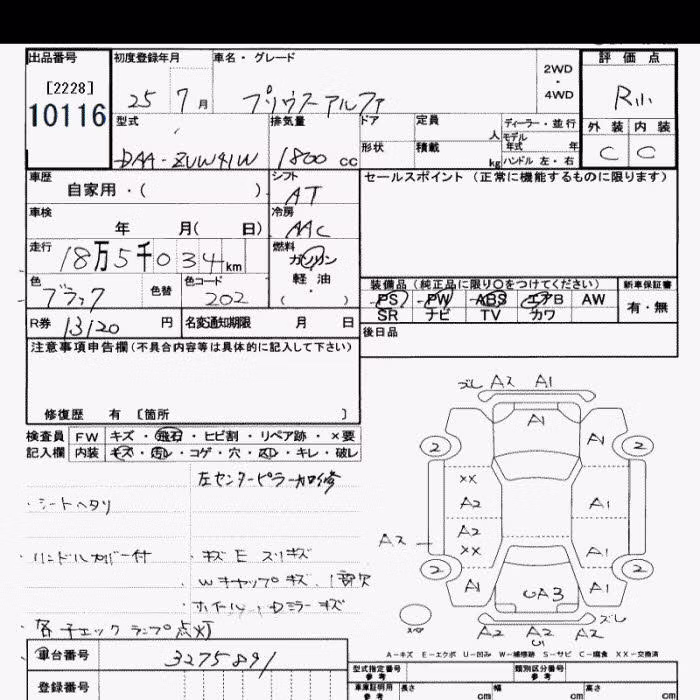 出品番号 初度登録年月 車名・グレード 評価点
[2228] 2WD・4WD
10116 25 7月 プリウスアルファ R小
型式 排気量 ドア 定員 人 ディーラー・並行 外装 内装
モデル年式 年
DAA-ZVW41W 1800cc 形状 積載 kg ハンドル 左・右 C C
車歴 シフト セールスポイント(正常に機能するものに限ります)
自家用・( ) AT
車検 冷房
年 月( 日) AAC
走行 燃料
18万5千034km ガソリン
軽油
色 色替 色コード ( ・ )
ブラック 202
装備品(純正品に限り〇をつけてください) 新車保証書
PS PW ABS エアB AW 有・無
SR ナビ TV カワ
R券 13120円 名変通知期限 月 日
後日品
注意事項申告欄(不具合内容等は具体的に記入して下さい)
修復歴 有 [箇所 ]
検査員 FW キズ・飛石・ヒビ割・リペア跡・×要
記入欄 内装 キズ・汚レ・コゲ・穴・凶レ・キレ・破レ
左センターピラー加修
・シートヘタリ
・ハンドルカバー付 ・キズ E スリキズ
・Wキャップキズ、1部欠
・ホイール・Dミラーキズ
・各チェックランプ点灯
車台番号 3275891
登録番号
ズレ A2 A1
A1
2 A1 2
XX
A2 A1
A2
A2 XX A1
2 2
A1 UA3 A1
スペア ズレ
A2 A2 A2
U1
A-キズ E-エクボ U-凹み W-補修跡 S-サビ C-腐食 XX-交換済
型式指定番号 参考 類別区分番号 参考
車庫証明用 参考 長さ cm 幅 cm 高さ cm